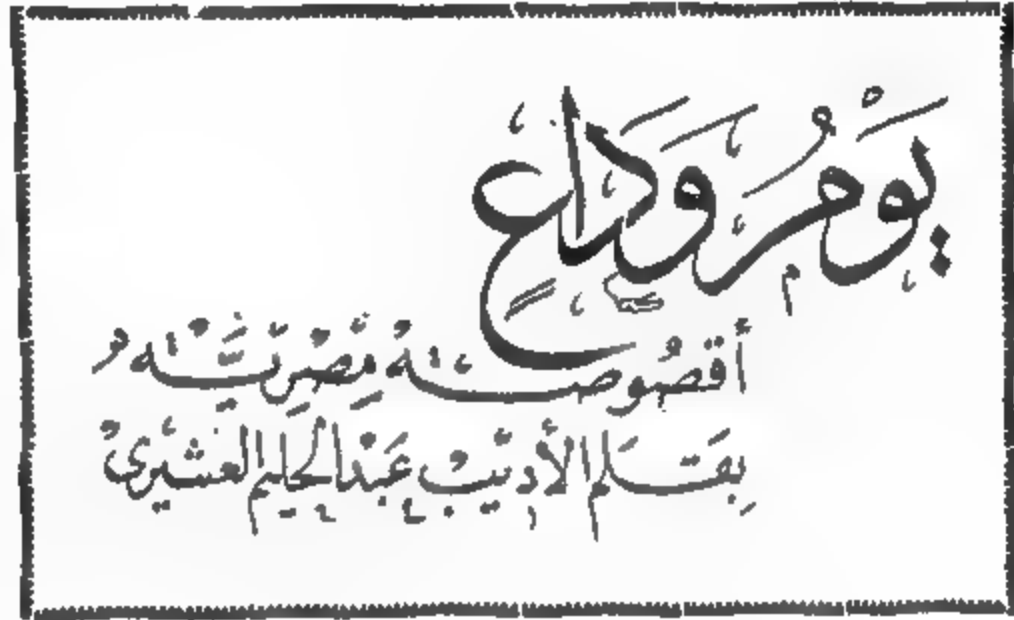 يَوْمُ وَدَاع
أقصُوصَة مِصْريَّة
بقَلم الأديب عَبْد الحليم العشيري